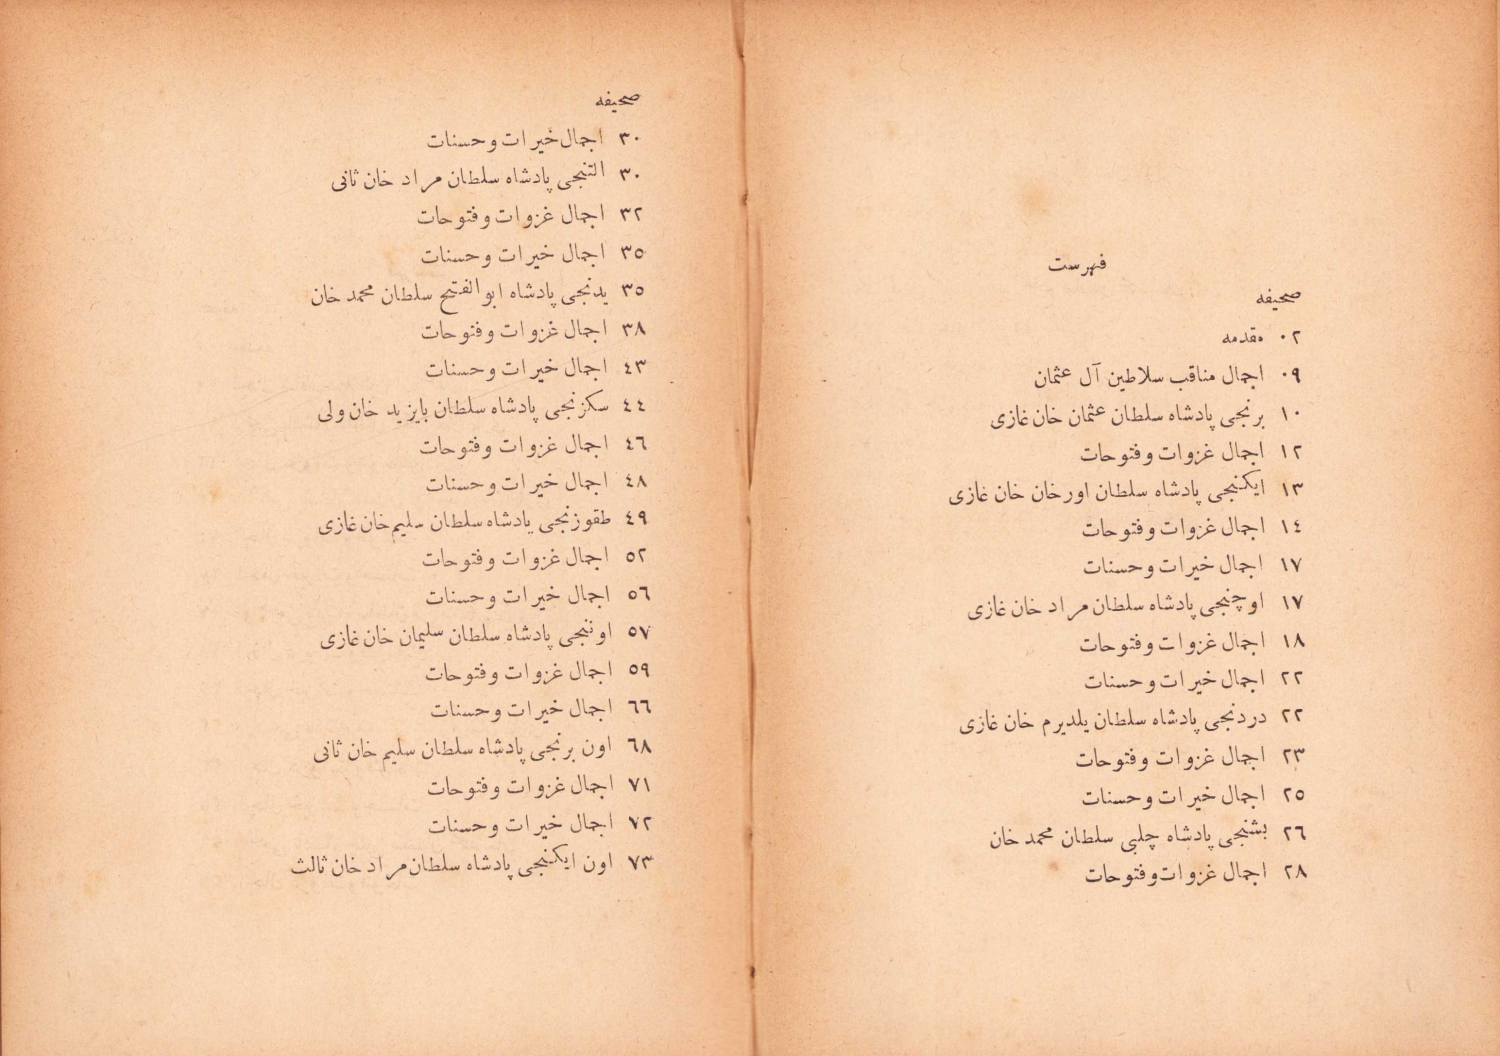 فهرست
صحیفه
٠٢ مقدمه
٠٩ اجمال مناقب سلاطین آل عثمان
١٠ برنجی پادشاه سلطان عثمان خان غازی
١٢ اجمال غزوات وفتوحات
١٣ ایکنجی پادشاه سلطان اورخان خان غازی
١٤ اجمال غزوات وفتوحات
١٧ اجمال خیرات وحسنات
١٧ اوچنجی پادشاه سلطان مراد خان غازی
١٨ اجمال غزوات وفتوحات
٢٢ اجمال خیرات وحسنات
٢٢ دردنجی پادشاه سلطان یلدیرم خان غازی
٢٣ اجمال غزوات وفتوحات
٢٥ اجمال خیرات وحسنات
٢٦ بشنجی پادشاه چلبی سلطان محمد خان
٢٨ اجمال غزوات وفتوحات
صحیفه
٣٠ اجمال خیرات وحسنات
٣٠ التنجی پادشاه سلطان مراد خان ثانی
٣٢ اجمال غزوات وفتوحات
٣٥ اجمال خیرات وحسنات
٣٥ یدنجی پادشاه ابوالفتح سلطان محمد خان
٣٨ اجمال غزوات وفتوحات
٤٣ اجمال خیرات وحسنات
٤٤ سکزنجی پادشاه سلطان بایزید خان ولی
٤٦ اجمال غزوات وفتوحات
٤٨ اجمال خیرات وحسنات
٤٩ طقوزنجی پادشاه سلطان سلیم خان غازی
٥٢ اجمال غزوات وفتوحات
٥٦ اجمال خیرات وحسنات
٥٧ اوننجی پادشاه سلطان سلیمان خان غازی
٥٩ اجمال غزوات وفتوحات
٦٦ اجمال خیرات وحسنات
٦٨ اون برنجی پادشاه سلطان سلیم خان ثانی
٧١ اجمال غزوات وفتوحات
٧٢ اجمال خیرات وحسنات
٧٣ اون ایکنجی پادشاه سلطان مراد خان ثالث